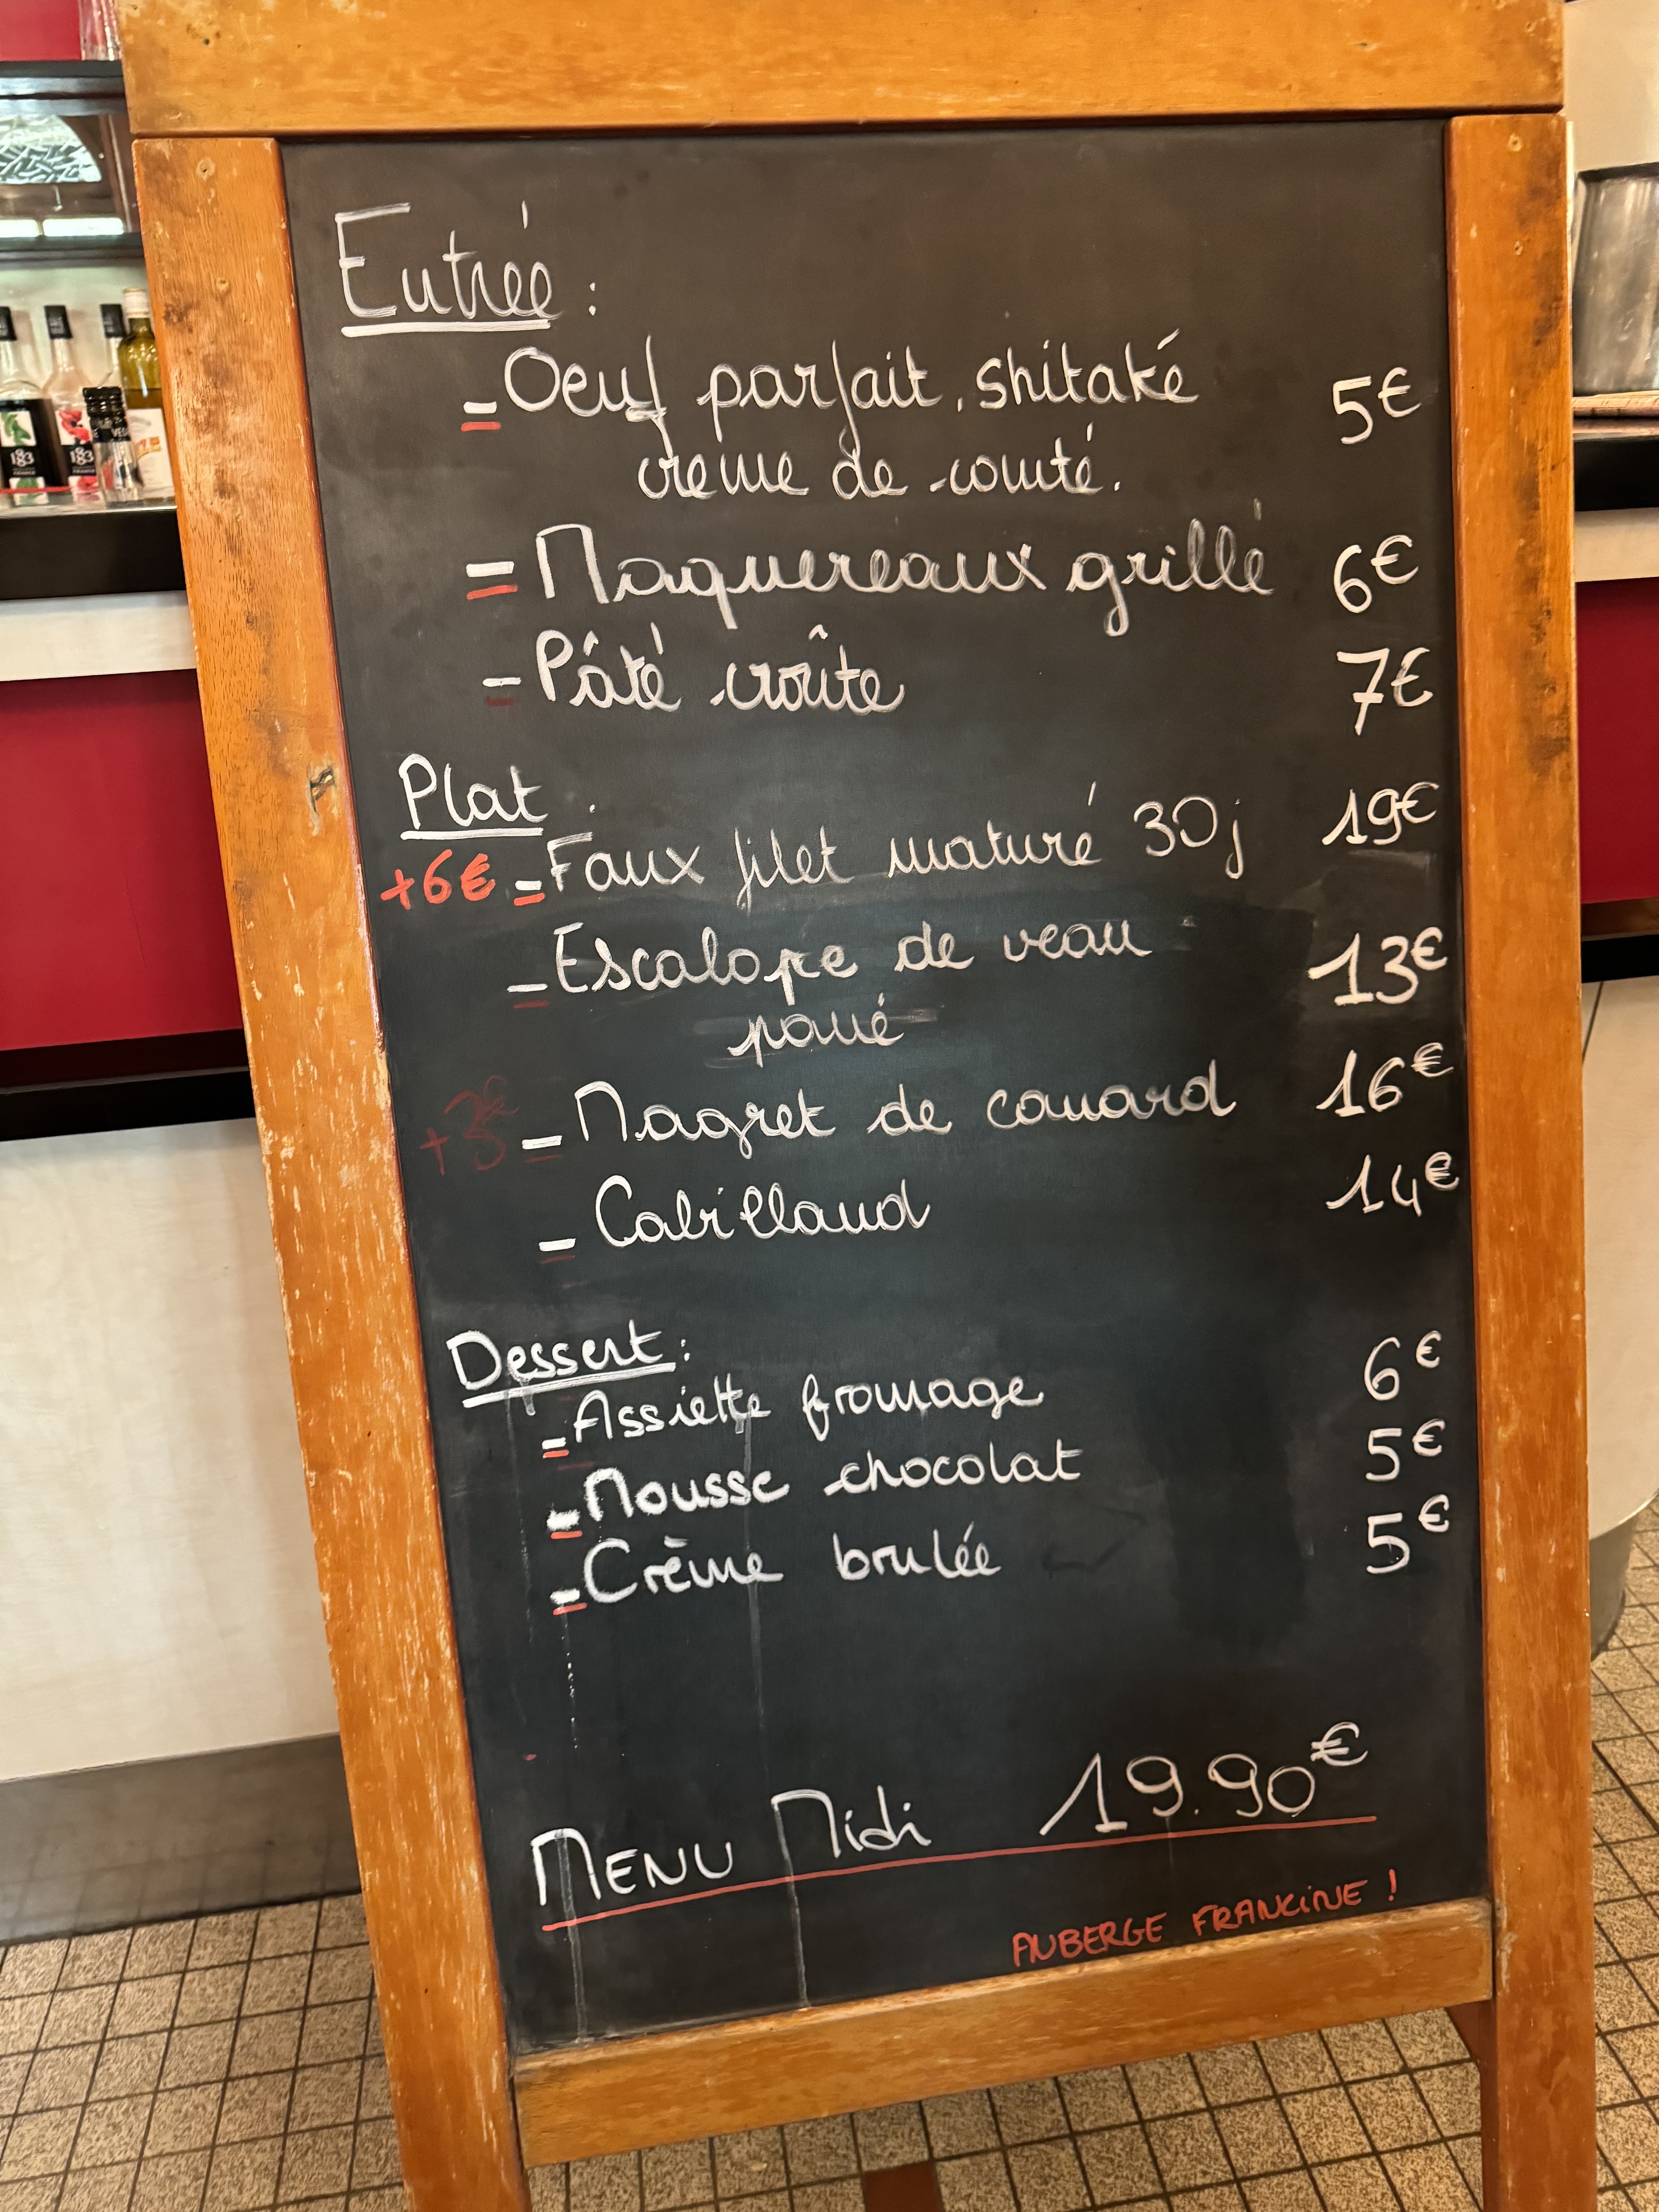 Entrée :
- Oeuf parfait, shitaké 5€
crème de comté.
- Maquereaux grillé 6€
- Pâté croûte 7€
Plat :
+6€ - Faux filet maturé 30j 19€
- Escalope de veau 13€
pané
+3€ - Magret de canard 16€
- Cabillaud 14€
Dessert :
- Assiette fromage 6€
- Mousse chocolat 5€
- Crème brulée 5€
MENU Midi 19.90€
AUBERGE FRANCINE !
183
183